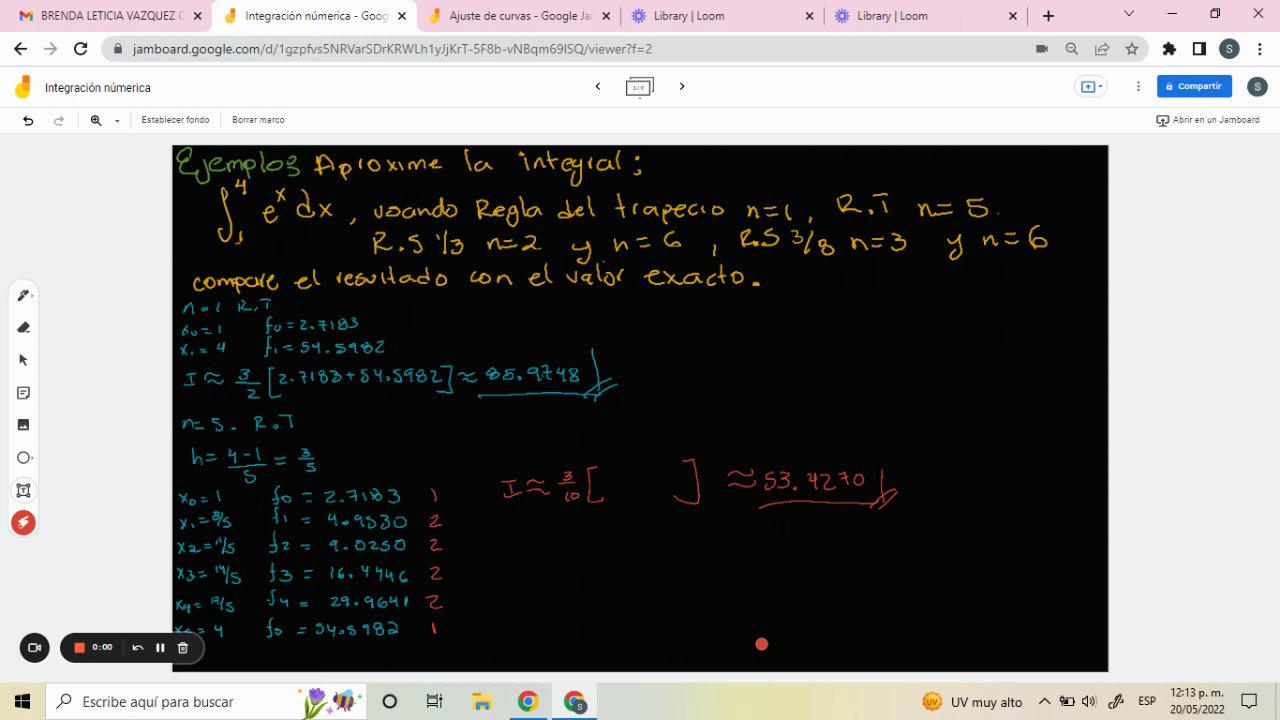 BRENDA LETICIA VAZQUEZ
Integración númerica - Goog
Ajuste de curvas - Google Ja
Library | Loom
Library | Loom
jamboard.google.com/d/1gzpfvs5NRVarSDrKRWLh1yJjKrT-5F8b-vNBqm69ISQ/viewer?f=2
S
Integración númerica
3 / 9
Compartir
S
Establecer fondo
Borrar marco
Abrir en un Jamboard
Ejemplos Aproxime la integral:
∫₁⁴ eˣ dx, usando Regla del trapecio n=1, R.T n=5.
R.S 1/3 n=2 y n=6, R.S 3/8 n=3 y n=6
compare el resultado con el valor exacto.
n=1 R.T.
x₀=1 f₀=2.7183
x₁=4 f₁=54.5982
I ≈ 3/2 [2.7183+54.5982] ≈ 85.9748
n=5. R.T
h= 4-1/5 = 3/5
I ≈ 3/10 [ ] ≈ 53.4270
x₀=1 f₀ = 2.7183 1
x₁=8/5 f₁ = 4.9530 2
x₂=11/5 f₂ = 9.0250 2
x₃=14/5 f₃ = 16.4446 2
x₄=17/5 f₄ = 29.9641 2
x₅=4 f₅ = 54.5982 1
0:00
Escribe aquí para buscar
UV muy alto
ESP
12:13 p. m.
20/05/2022